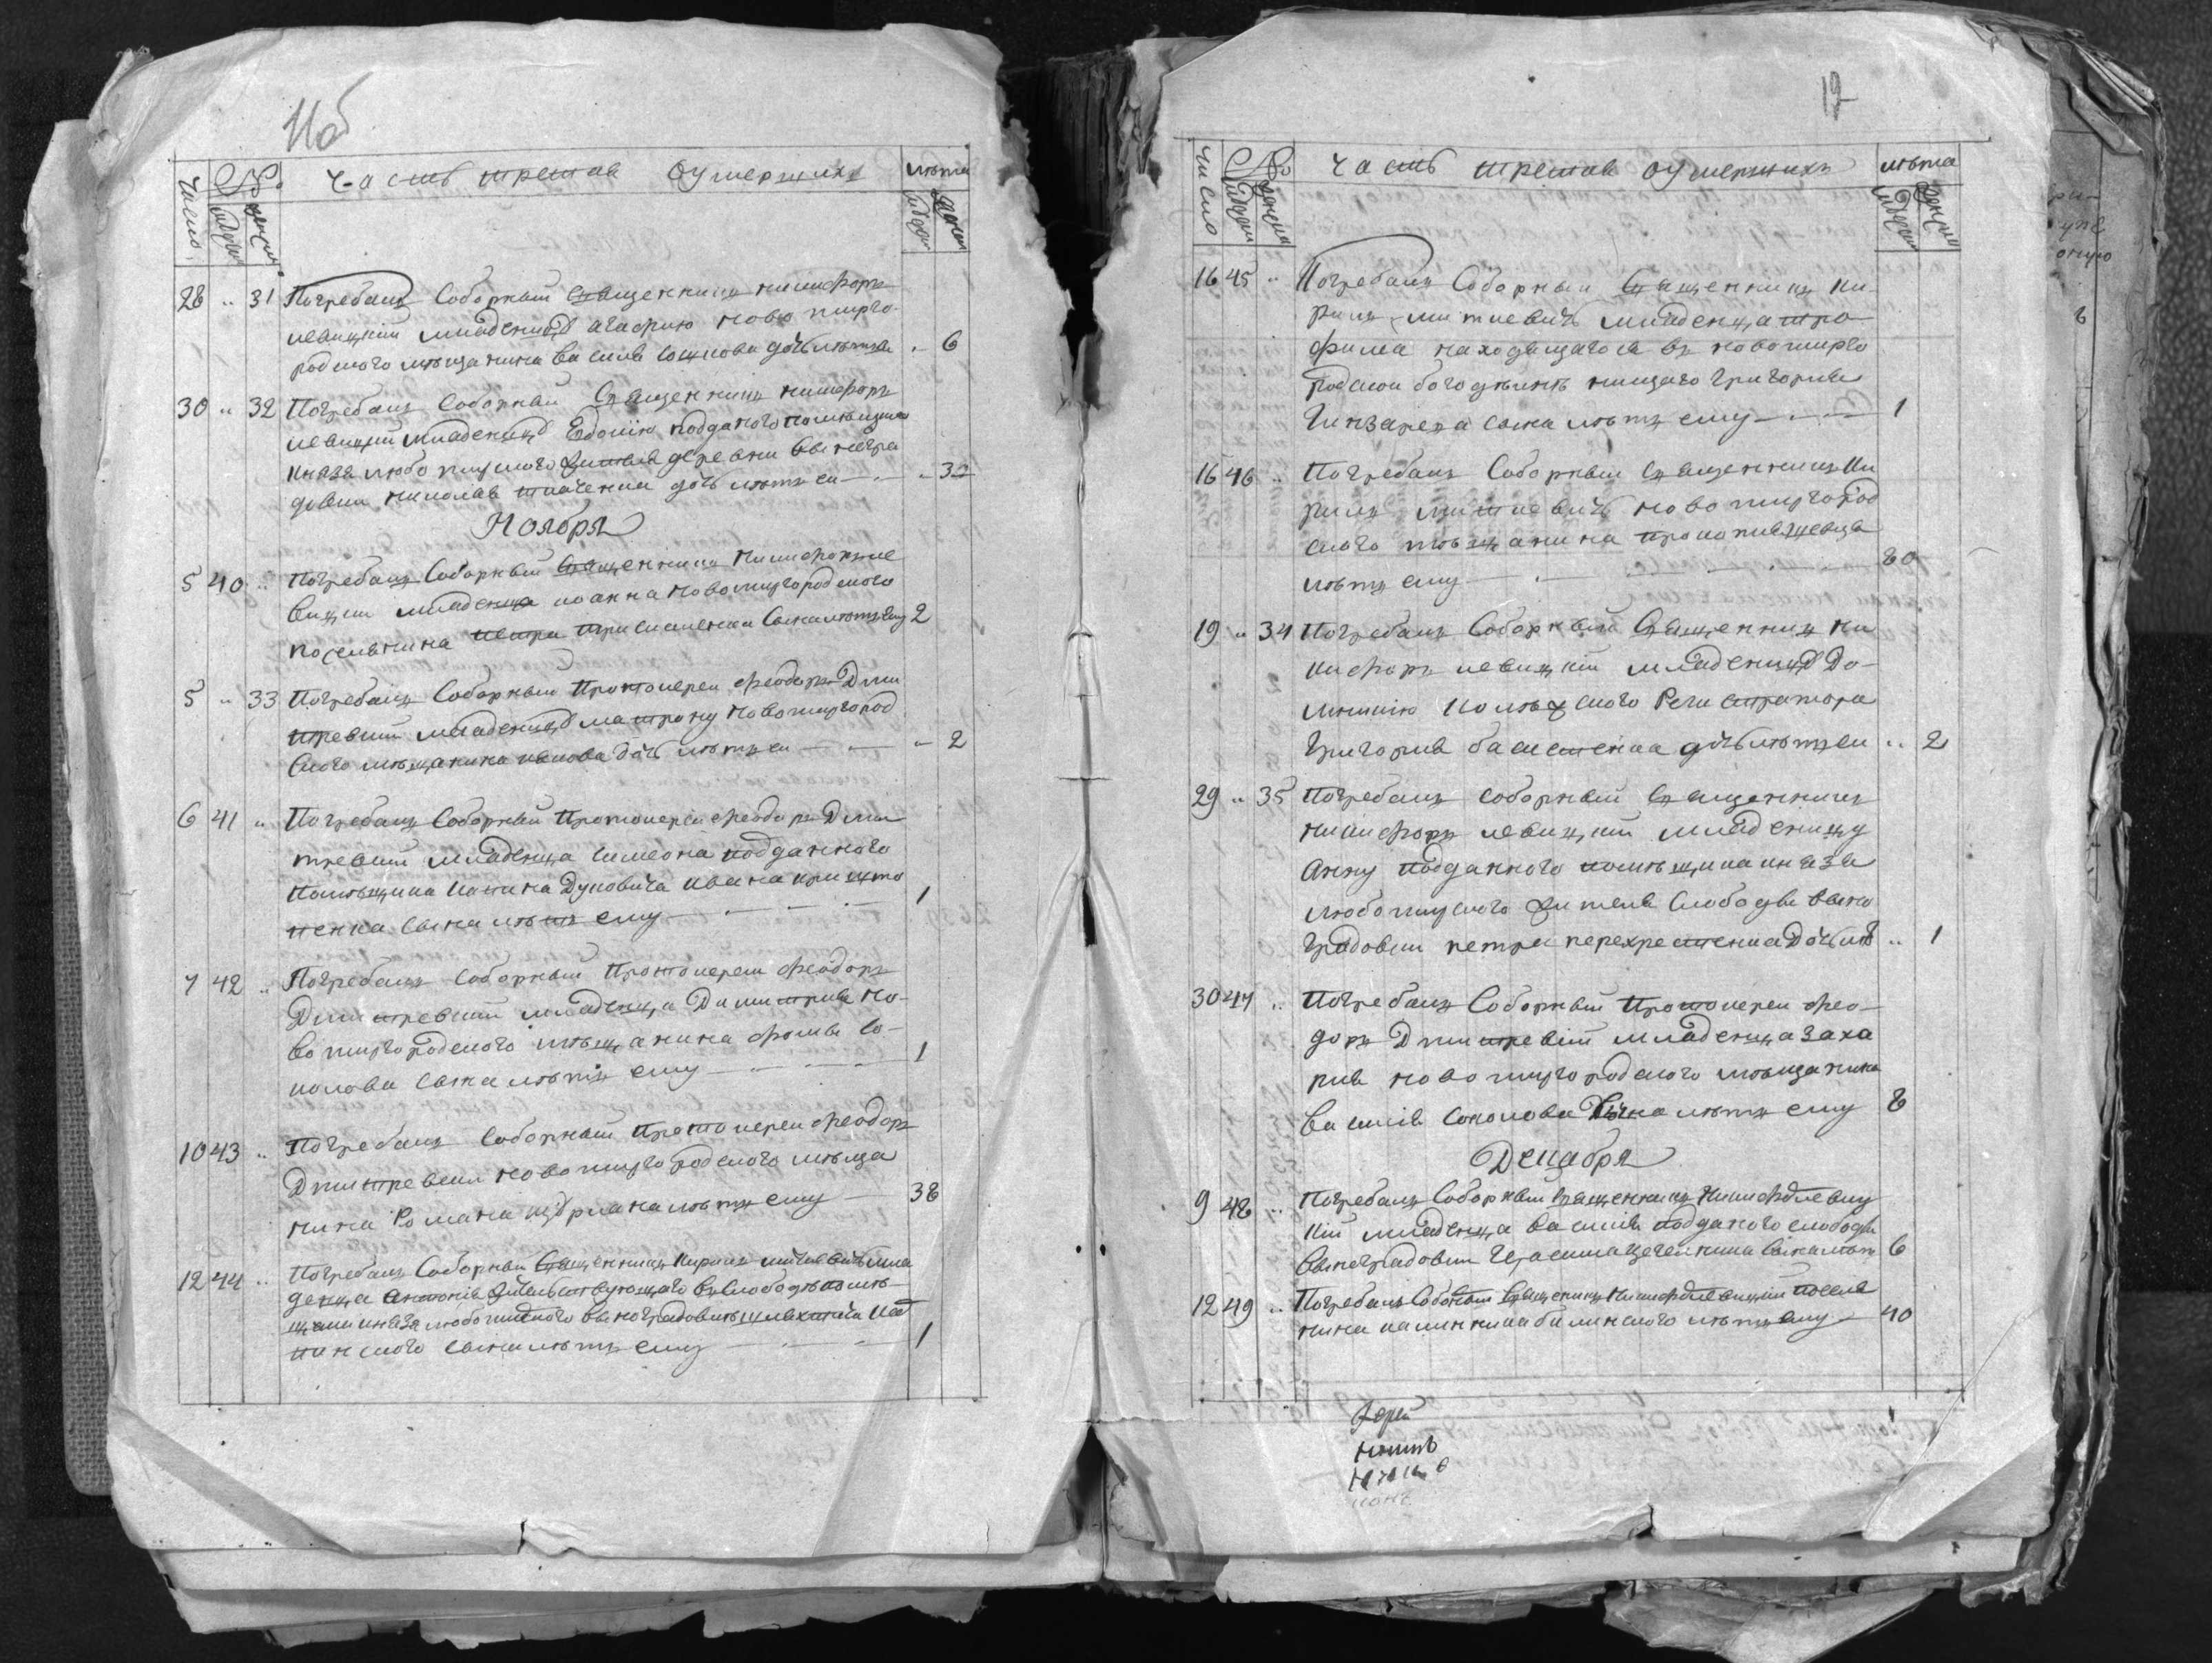 11об
Число № Часть третая оумерших лета
мужеск женск мужеск женск
28 " 31 Погребалъ Соборный Священникъ никифоръ
левицкій младеницу агафию новомирго-
родского мещанина василя дочь лета " 6
30 " 32 Погребалъ Соборный Священникъ никифоръ
левицкій младеницу Евдокию подданого помещика
князя любомирского жителя деревни выногра
довки николая ткаченка дочь летъ ей " 30
Ноября
5 40 " Погребалъ Соборный Священникъ Никифоръ ле
вицкий младенца иоанна новомиргородского
поселянина петра сына летъ ему 2
5 " 33 Погребалъ Соборный Протоиерей феодоръ Дми
тревский младеницу матрону новомиргород
ского мещанина дочь летъ ей " 2
6 41 " Погребалъ Соборный Протоиерей феодоръ Дми
тревский младенца симеона подданного
помещика ивана
сына летъ ему 1
7 42 " Погребалъ Соборный Протоиерей феодоръ
Дмитревский младенца Димитрия но-
вомиргородского мещанина фомы со-
колова сына летъ ему 1
10 43 " Погребалъ Соборный Протоиерей феодоръ
Дмитревски новомиргородского меща
нина Романа летъ ему 38
12 44 " Погребалъ Соборный Священникъ Кирилъ миткевичъ мла
денца антония жительствующего въ слободе поме
щика князя любомирского выноградовке шляхтича
сына летъ ему 1
12
Число № Часть третая оумерших лета
мужеск женска мужеск женска
16 45 " Погребалъ Соборный Священникъ Ки
рилъ миткевичъ младенца тро
фима находящагося въ новомирго
родской богоделне нищаго Григория
Гинзареха сына летъ ему 1
16 46 " Погребалъ Соборный Священникъ Ки
рилъ миткевичъ новомиргород
ского мещанина
летъ ему 80
19 " 34 Погребалъ Соборный Священникъ Ни
кифоръ левицкій младеницу До-
мникию Колежского Регистратора
Григория дочь летъ ей " 2
29 " 35 Погребалъ Соборный Священникъ
никифоръ левицкій младеницу
Анну подданого помещика князя
любомирского жителя слободы выно
градовки петра перехрестенка дочь ле " 1
30 47 " Погребалъ Соборный Протоиерей фео-
доръ Дмитревкій младенца заха
рия новомиргородского мещанина
василія соколова сына летъ ему 8
Декабря
9 48 " Погребалъ Соборный Священникъ Никифоръ левиц
кій младенца василия подданого слободы
выноградовки Герасима сына летъ 6
12 49 " Погребалъ Соборный Священникъ Никифоръ левицкій поселя
нина калинника билинского летъ ему 40